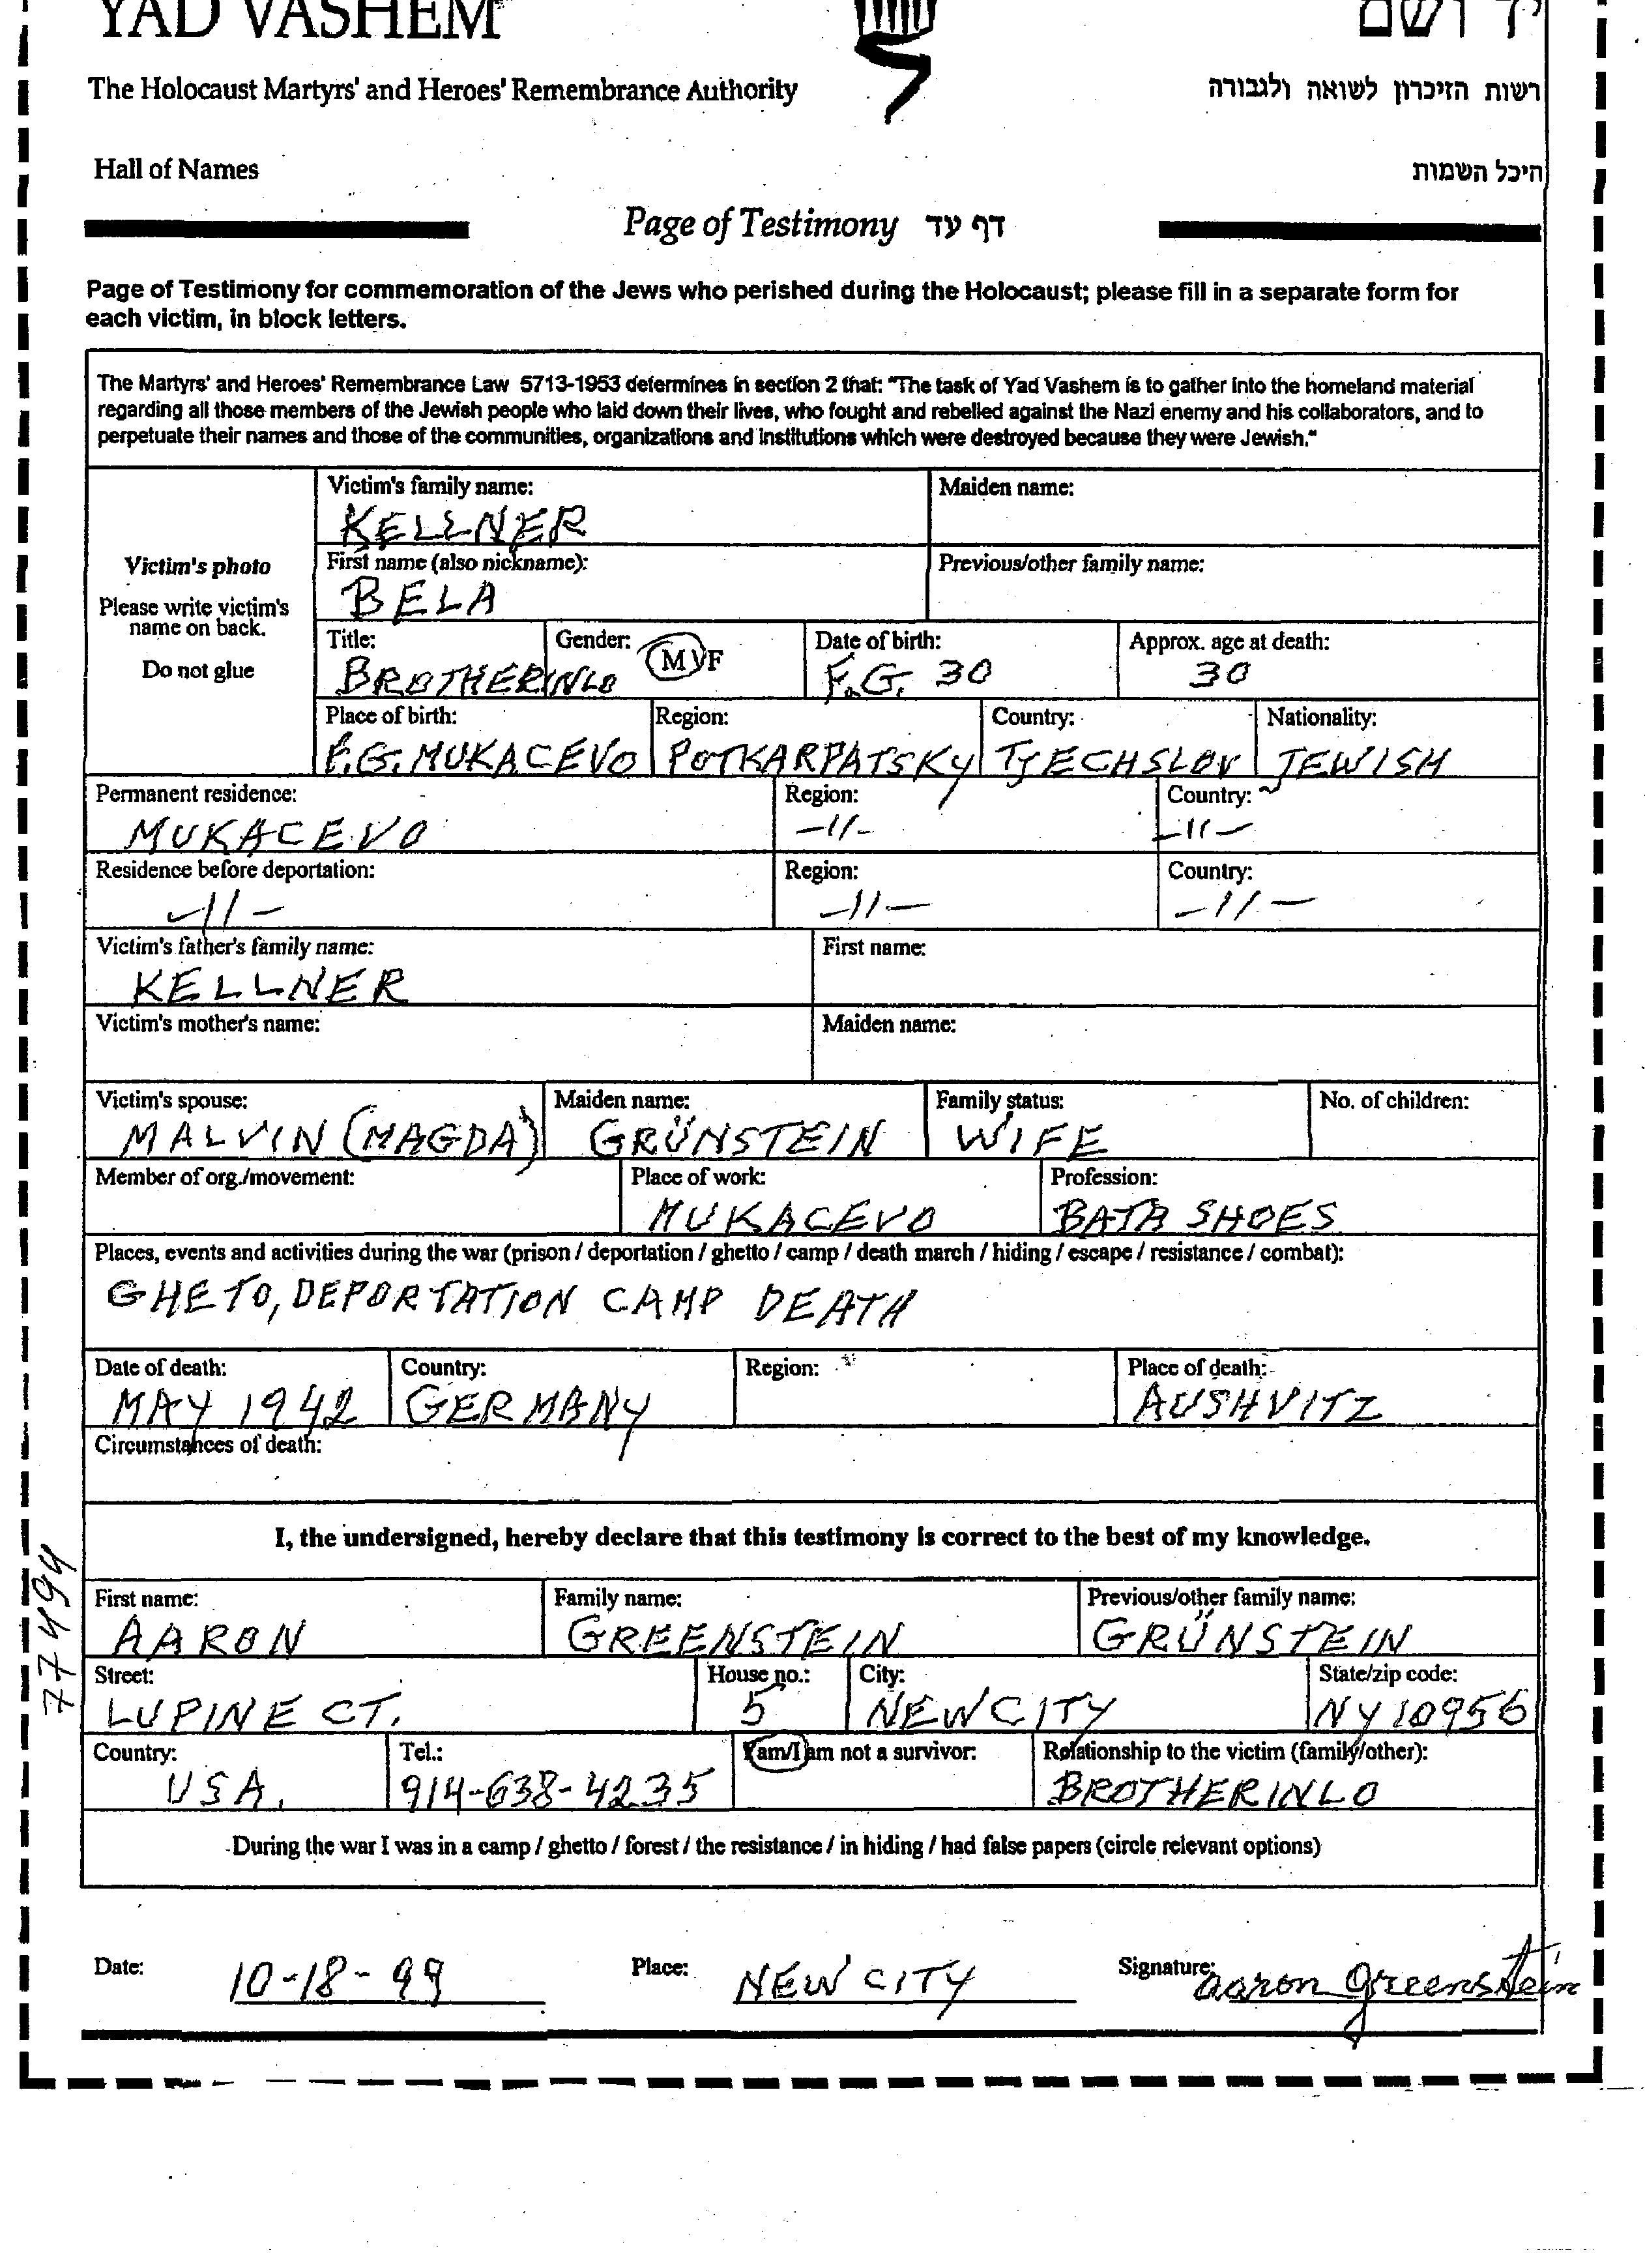 YAD VASHEM
יד ושם
The Holocaust Martyrs' and Heroes' Remembrance Authority
רשות הזיכרון לשואה ולגבורה
Hall of Names
היכל השמות
Page of Testimony דף עד
Page of Testimony for commemoration of the Jews who perished during the Holocaust; please fill in a separate form for
each victim, in block letters.
The Martyrs' and Heroes' Remembrance Law 5713-1953 determines in section 2 that: "The task of Yad Vashem is to gather into the homeland material
regarding all those members of the Jewish people who laid down their lives, who fought and rebelled against the Nazi enemy and his collaborators, and to
perpetuate their names and those of the communities, organizations and institutions which were destroyed because they were Jewish."
Victim's photo
Please write victim's
name on back.
Do not glue
Victim's family name: Maiden name:
KELLNER
First name (also nickname): Previous/other family name:
BELA
Title: Gender: M/F Date of birth: Approx. age at death:
BROTHERINLO F.G. 30 30
Place of birth: Region: Country: Nationality:
F.G. MUKACEVO POTKARPATSKY TJECHSLOV JEWISH
Permanent residence: Region: Country:
MUKACEVO -11- -11-
Residence before deportation: Region: Country:
-11- -11- -11-
Victim's father's family name: First name:
KELLNER
Victim's mother's name: Maiden name:
Victim's spouse: Maiden name: Family status: No. of children:
MALVIN (MAGDA) GRÜNSTEIN WIFE
Member of org./movement: Place of work: Profession:
MUKACEVO BATA SHOES
Places, events and activities during the war (prison / deportation / ghetto / camp / death march / hiding / escape / resistance / combat):
GHETO, DEPORTATION CAMP DEATH
Date of death: Country: Region: Place of death:
MAY 1942 GERMANY AUSHVITZ
Circumstances of death:
I, the undersigned, hereby declare that this testimony is correct to the best of my knowledge.
First name: Family name: Previous/other family name:
AARON GREENSTEIN GRÜNSTEIN
Street: House no.: City: State/zip code:
LUPINE CT. 5 NEW CITY NY 10956
Country: Tel.: I am/I am not a survivor: Relationship to the victim (family/other):
USA. 914-638-4235 BROTHERINLO
During the war I was in a camp / ghetto / forest / the resistance / in hiding / had false papers (circle relevant options)
Date: 10-18-99 Place: NEW CITY Signature: aaron greenstein
77494